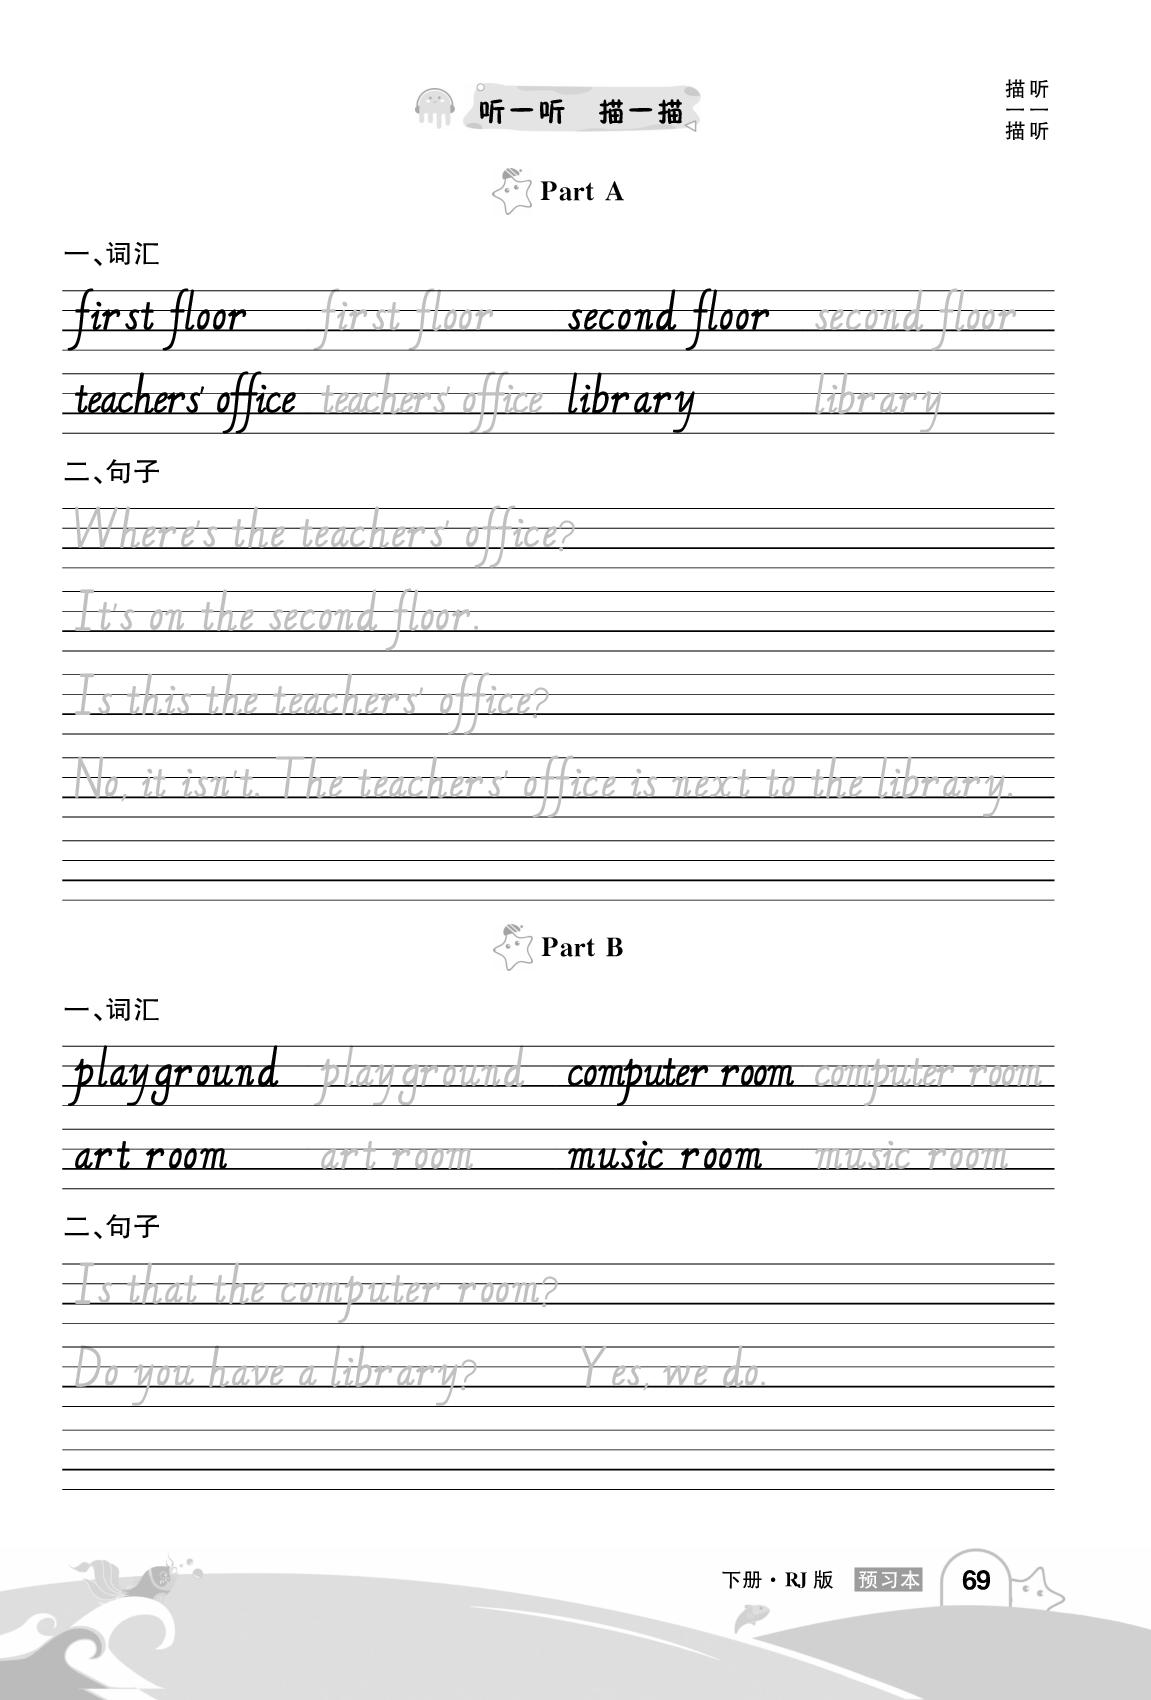 听一听 描一描
听一听
描一描
Part A
一、词汇
first floor first floor second floor second floor
teachers' office teachers' office library library
二、句子
Where's the teachers' office?
It's on the second floor.
Is this the teachers' office?
No, it isn't. The teachers' office is next to the library.
Part B
一、词汇
playground playground computer room computer room
art room art room music room music room
二、句子
Is that the computer room?
Do you have a library? Yes, we do.
下册·RJ版 预习本 69